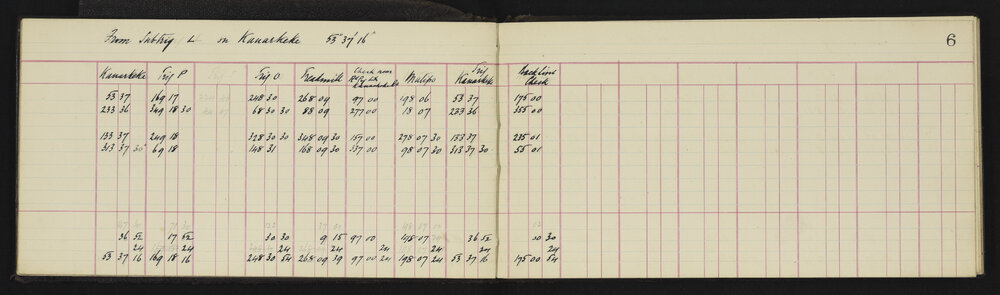 From Subtrig L on Kanarkeke 53° 37' 16"
6
Kanarkeke Trig P Trig O Treadmill Check near Malipo Trig Kanarkeke Back Line Check
53 37 169 17 248 30 268 09 97 00 198 06 53 37 175 00
233 36 349 18 30 68 30 30 88 09 277 00 18 07 233 36 355 00
133 37 249 18 328 30 30 348 09 30 157 00 278 07 30 133 37 235 01
313 37 30 69 18 148 31 168 09 30 337 00 98 07 30 313 37 30 55 01
36 52 17 52 30 30 9 15 97 00 07 36 52 00 30
24 24 24 24 24 24 24 24
53 37 16 169 18 16 248 30 54 268 09 39 97 00 24 198 07 24 53 37 16 175 00 54